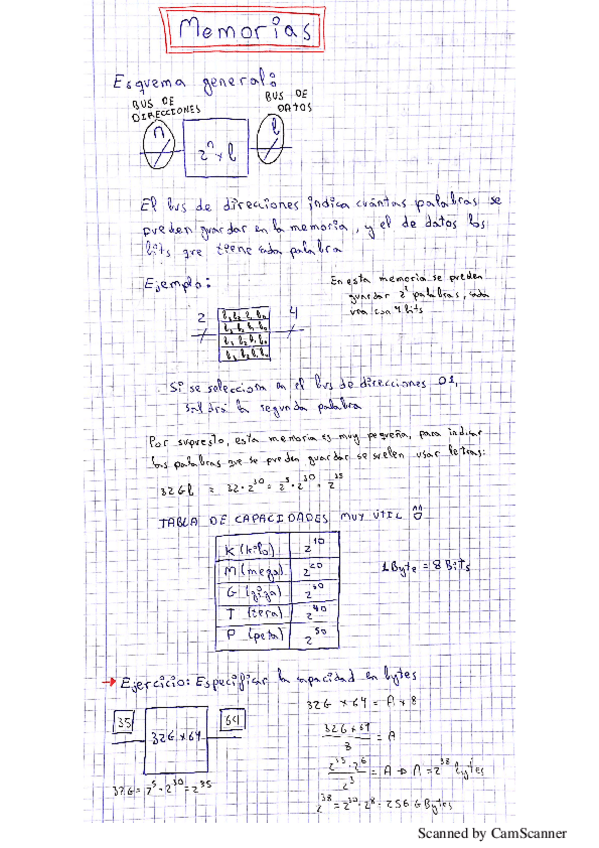 Memorias
Esquema general:
BUS DE DIRECCIONES
BUS DE DATOS
n
l
2ⁿ x l
El bus de direcciones indica cuántas palabras se
pueden guardar en la memoria, y el de datos los
bits que tiene cada palabra
Ejemplo:
En esta memoria se pueden
guardar 2² palabras, cada
una con 4 bits
2
4
b₃ b₂ b₁ b₀
b₃ b₂ b₁ b₀
b₃ b₂ b₁ b₀
b₃ b₂ b₁ b₀
Si se selecciona en el bus de direcciones 01,
saldrá la segunda palabra
Por supuesto, esta memoria es muy pequeña, para indicar
las palabras que se pueden guardar se suelen usar letras:
= 32·2³⁰ = 2⁵·2³⁰ = 2³⁵
TABLA DE CAPACIDADES MUY ÚTIL
K (kilo) 2¹⁰
M (mega) 2²⁰
G (giga) 2³⁰
T (tera) 2⁴⁰
P (peta) 2⁵⁰
1 Byte = 8 Bits
→ Ejercicio: Especificar la capacidad en bytes
35
32G x 64
64
32G = 2⁵·2³⁰ = 2³⁵
32G x 64 = A x 8
32G x 64 / 8 = A
2³⁵·2⁶ / 2³ = A → A = 2³⁸ bytes
2³⁸ = 2³⁰·2⁸ = 256 GBytes
Scanned by CamScanner